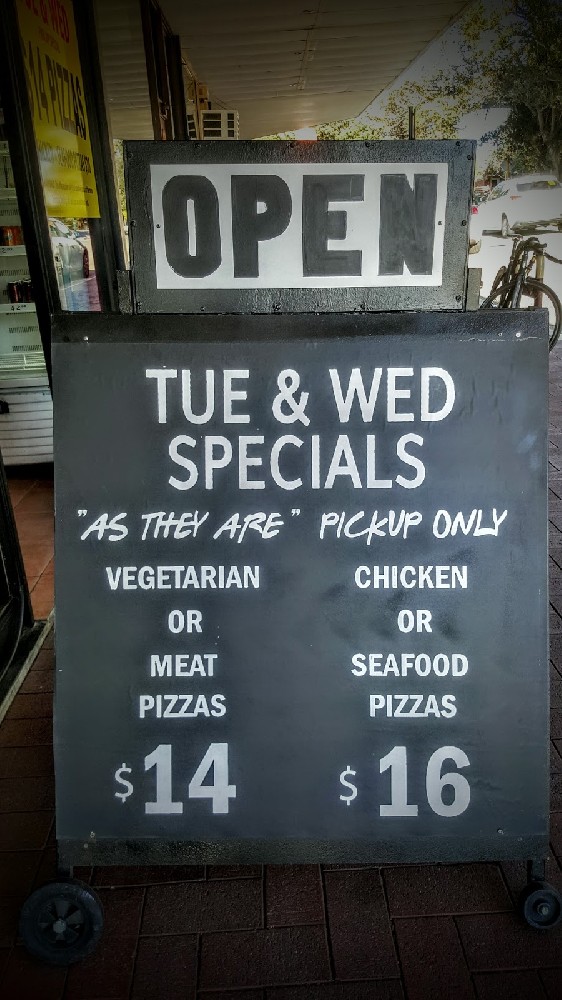 & WED
$14 PIZZAS
OPEN
TUE & WED
SPECIALS
"AS THEY ARE" PICKUP ONLY
VEGETARIAN
OR
MEAT
PIZZAS
$14
CHICKEN
OR
SEAFOOD
PIZZAS
$16